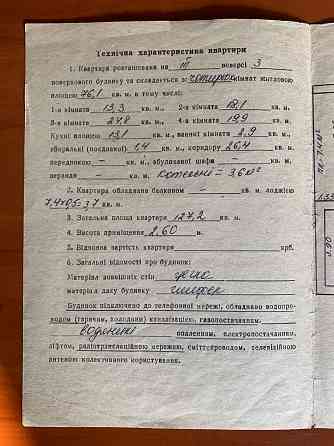 Технічна характеристика квартири
1. Квартира розташована на III поверсі 3
поверхового будинку та складається з чотирьох кімнат жилтовою
площею 76,1 кв. м, в тому числі:
1-а кімната 13,3 кв. м, 2-а кімната 18,1 кв. м,
3-я кімната 24,8 кв. м, 4-а кімната 19,9 кв. м.
Кухні площею 13,1 кв. м, ванної кімнати 2,9 кв. м,
вбиральні (поєднаної) 1,4 кв. м, коридору 26,4 кв. м,
передпокою – кв. м, вбудованої шафи – кв. м,
веранди – кв. м. котельні = 3,6 м²
2. Квартира обладнана балконом – кв. м, лоджією
7,4х0,5=3,7 кв. м.
3. Загальна площа квартири 127,2 кв. м.
4. Висота приміщення 2,60 м.
5. Відновна вартість квартири крб.
6. Загальні відомості про будинок:
Матеріал зовнішніх стін
матеріал даху будинку шифер
Будинок підключено до телефонної мережі, обладнано водопро-
водом (гарячим, холодним) каналізацією, газопостачанням,
водяним опаленням, електропостачанням,
ліфтом, радіотрансляційною мережею, сміттєпроводом, телевізійною
антеною колективного користування.